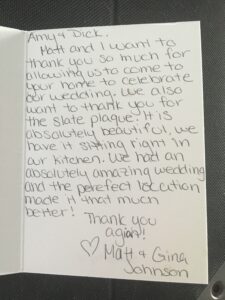 Amy & Dick,
Matt and I want to
thank you so much for
allowing us to come to
your home to celebrate
our wedding. We also
want to thank you for
the slate plaque. It is
absolutely beautiful, we
have it sitting right in
our kitchen. We had an
absolutely amazing wedding
and the perefect location
made it that much
better!
Thank you
agian!!
♡ Matt & Gina
Johnson